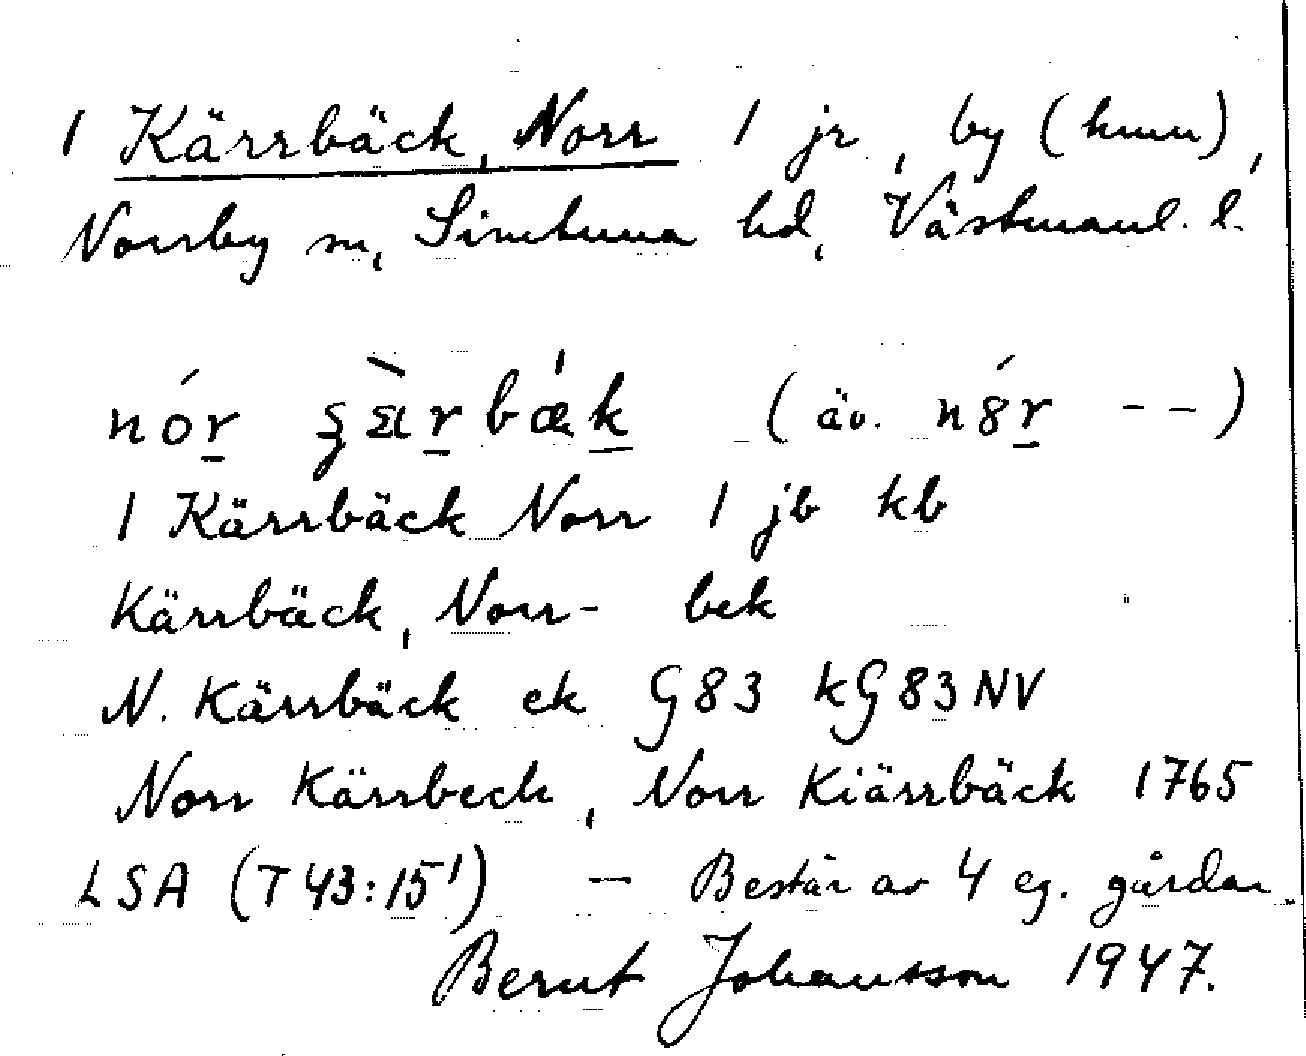 1 Kärrbäck, Norr 1 jr, by (hmn),
Norrby sn, Simtuna hd, Västmanl. l.
nór bák (äv. n8r --)
1 Kärrbäck Norr 1 jb kb
Kärrbäck, Norr- bek
N. Kärrbäck ek G83 kG83NV
Norr Kärrbeck, Norr Kiärrbäck 1765
LSA (T43:15¹) — Består av 4 eg. gårdar
Bernt Johansson 1947.